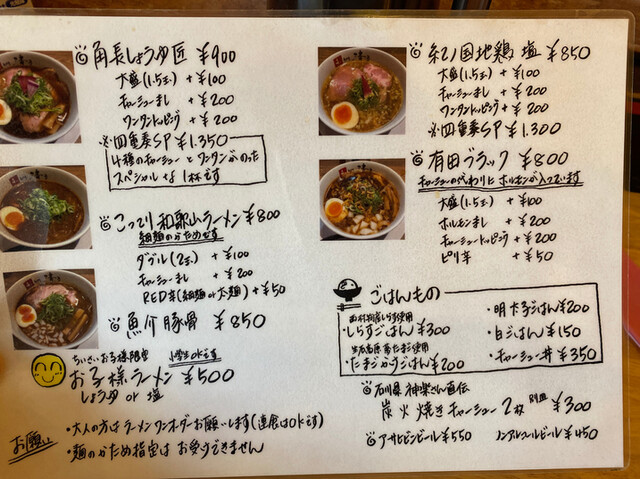 角長しょうゆ匠 ¥900
大盛(1.5玉) +¥100
チャーシューまし +¥200
ワンタントッピング +¥200
※四重奏SP ¥1,350
4種のチャーシューとワンタンがのった
スペシャルな1杯です
こってり和歌山ラーメン ¥800
細麺のかためです
ダブル(2玉) +¥100
チャーシューまし +¥200
RED辛(細麺or太麺) +¥50
魚介豚骨 ¥850
ちいさいお子様限定 小学生OKです
お子様ラーメン ¥500
しょうゆ or 塩
お願い
・大人の方はラーメンワンオーダーお願いします(連食はOKです)
・麺のかため指定はお受けできません
紀ノ国地鶏 塩 ¥850
大盛(1.5玉) +¥100
チャーシューまし +¥200
ワンタントッピング +¥200
※四重奏SP ¥1,300
有田ブラック ¥800
チャーシューの代わりにホルモンが入っています
大盛(1.5玉) +¥100
ホルモンまし +¥200
チャーシュートッピング +¥200
ピリ辛 +¥50
ごはんもの
・しらすごはん ¥300
・たまごかけごはん ¥200
・明太子ごはん ¥200
・白ごはん ¥150
・チャーシュー丼 ¥350
石川県 神楽さん直伝
炭火焼きチャーシュー2枚 別皿 ¥300
アサヒビンビール ¥550
ノンアルコールビール ¥450